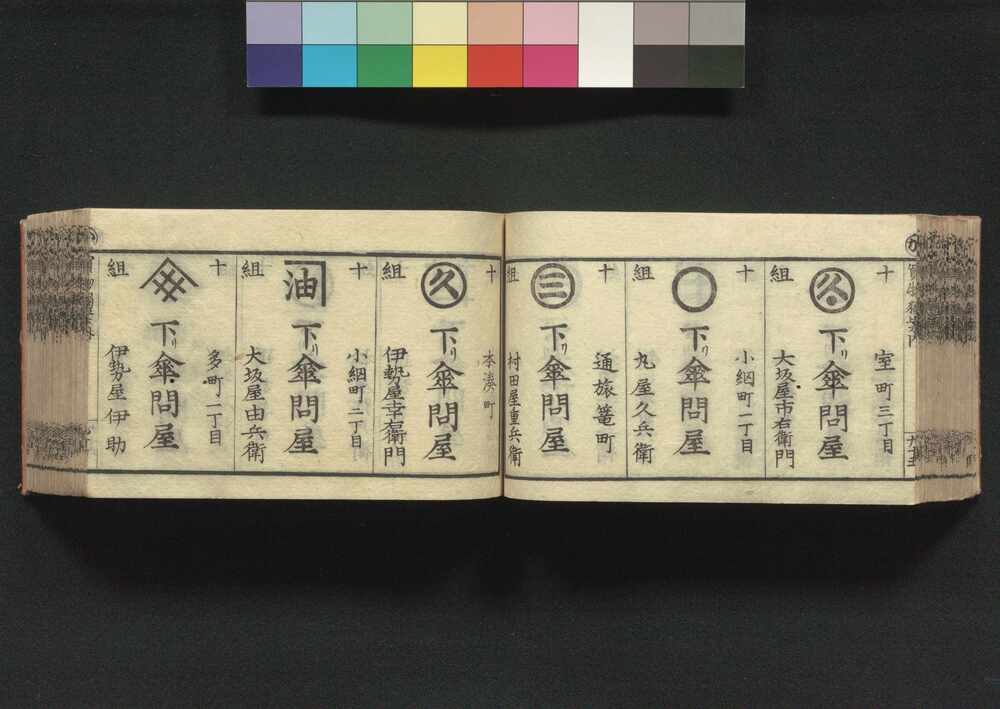 十
組
室町三丁目
下り傘問屋
大坂屋市右衛門
十
組
小網町一丁目
下り傘問屋
丸屋久兵衛
十
組
三
通旅篭町
下り傘問屋
村田屋重兵衛
十
組
久
本湊町
下り傘問屋
伊勢屋幸右衛門
十
組
油
小網町二丁目
下り傘問屋
大坂屋由兵衛
十
組
多町一丁目
下り傘問屋
伊勢屋伊助